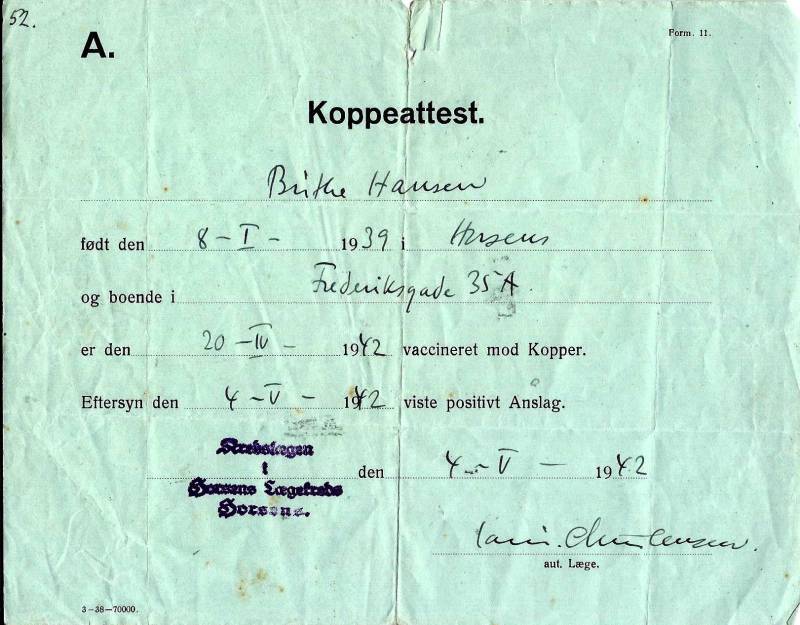 52.
A.
Form. 11.
Koppeattest.
Birthe Hansen
født den 8 – I – 1939 i Horsens
og boende i Frederiksgade 35 A.
er den 20 – IV – 1942 vaccineret mod Kopper.
Eftersyn den 4 – V – 1942 viste positivt Anslag.
Kredslægen
i
Horsens Lægekreds
Horsens.
den 4 – V – 1942
Christensen.
aut. Læge.
3—38—70000.